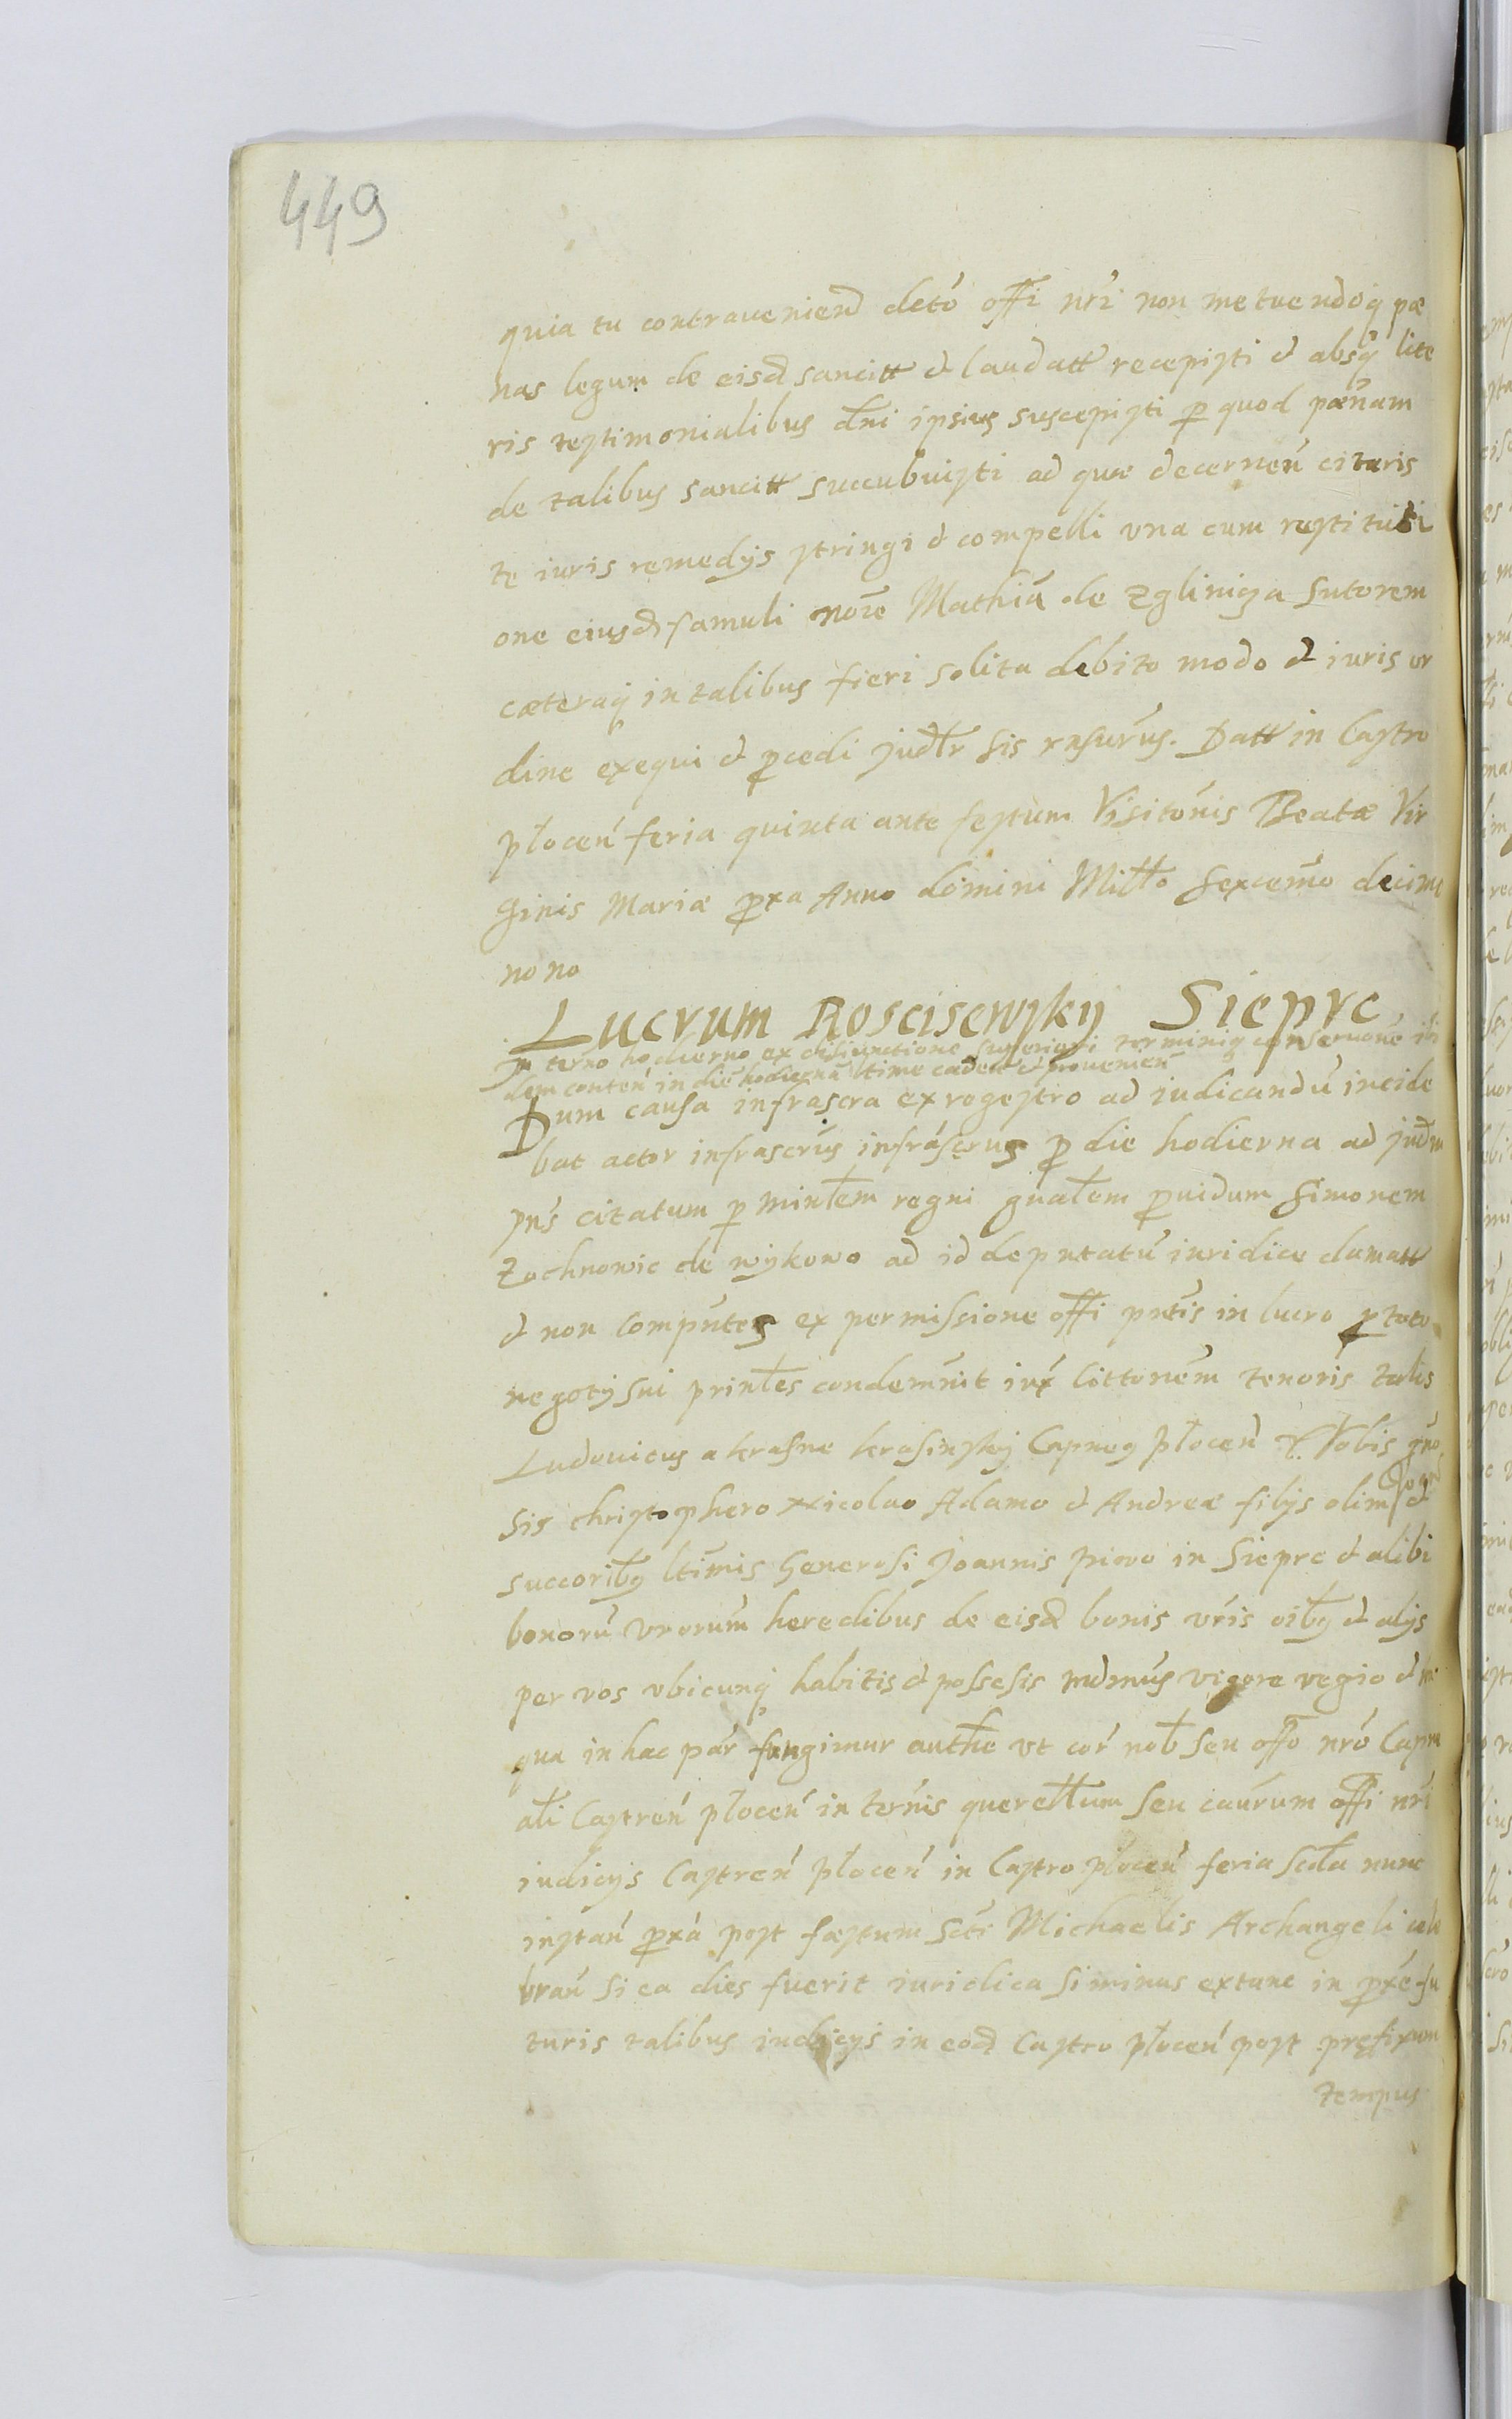 449
quia tu contraueniend decto offi nri non metuendoq pœ
nas legum de eisd sancitt et laudatt recepisti et absq lite
ris testimonialibus dni ipsius suscepisti p quod pœnam
de talibus sancitt succubuisti ad quæ decernen citaris
te iuris remedijs stringi et compelli vna cum restituti
one eiusd famuli noie Mathia de Zglinicza Sutorem
cæteraq in talibus fieri solita debito modo et iuris or
dine exequi et pcedi judlr sis rnsurus. Datt in Castro
płocen feria quinta ante festum Visitonis Beatæ Vir
ginis Mariæ pxa Anno domini Millo sexcemo decimo
nono
Lucrum Roscisewsky Sieprc
In termo hodierno ex disiunctione superiori terminiq conseruone ibi
dem conten in die hodierna ltime caden et prouenien
Dum causa infrascra ex regestro ad iudicandu incide
bat actor infrascrus infrascrus p die hodierna ad judm
pns citatum p minlem regni gnalem prouidum Simonem
Zochnowic de wykowo ad id deputatu iuridice clamatt
et non computes ex permissione offi pntis in lucro p toto
negotij sui prinles condemnit iux Cittonem tenoris talis
Ludouicus a krasne krasinsky Capneg płocen Vobis gno
sis christophero Nicolao Adamo et Andreæ filijs olim et
succoribg ltimis Generosi Joannis Piwo in Sieprc et alibi
bonoru vrorum heredibus de eisd bonis vris oibg et alijs
per vos vbicunq habitis et possesis mdmus vigore regio et
qua in hac par fungimur authe vt cor nob seu offo nro Capn
ali Castren płocen in termis querellum seu caurum offi nri
iudicijs Castren płocen in Castro płocen feria scda nunc
instan pxa post fæstum Scti Michaelis Archangeli cele
bran si ea dies fuerit iuridica si minus extunc in pxe fu
turis talibus iudicijs in eod Castro płocen post prefixum
tempus